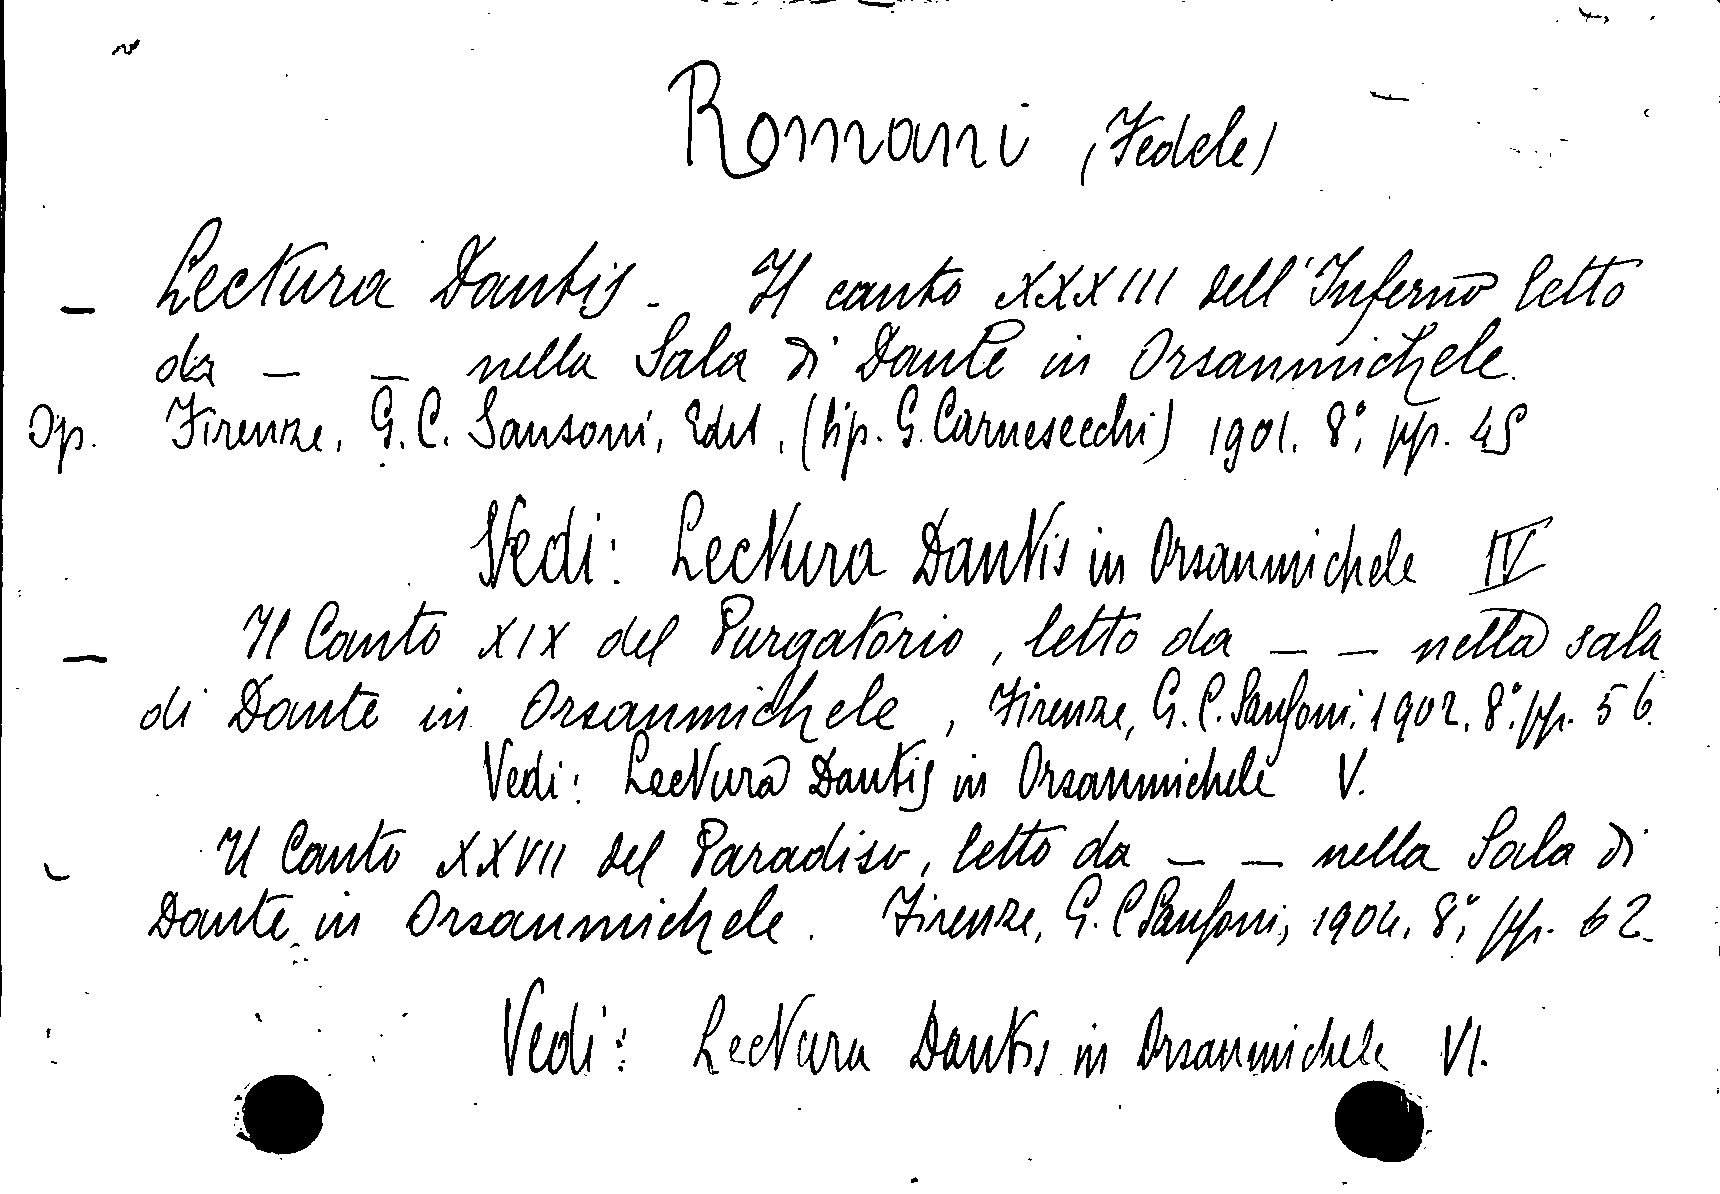 Romani (Fedele)
— Lectura Dantis - Il canto XXXIII dell'Inferno letto
da — — nella Sala di Dante in Orsanmichele.
Op. Firenze, G. C. Sansoni, Edit, (tip. G. Carnesecchi) 1901. 8°, pp. 45
Vedi: Lectura Dantis in Orsanmichele IV
— Il Canto XIX del Purgatorio, letto da — — nella sala
di Dante in Orsanmichele, Firenze, G. C. Sansoni. 1902. 8°, pp. 56.
Vedi: Lectura Dantis in Orsanmichele V.
Il Canto XXVII del Paradiso, letto da — — nella Sala di
Dante in Orsanmichele. Firenze, G. C Sansoni, 1904. 8°, pp. 62.
Vedi: Lectura Dantis in Orsanmichele VI.